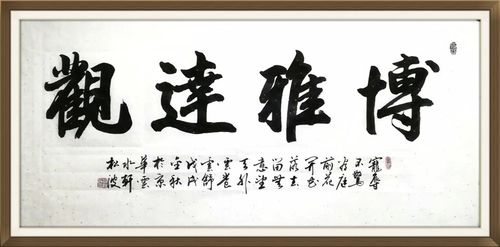 博雅達觀
寵辱
不驚
看庭
前花
開花
落去
留無
意望
天外
雲卷
雲舒
戊戌
金秋
於
雲
水軒
松波